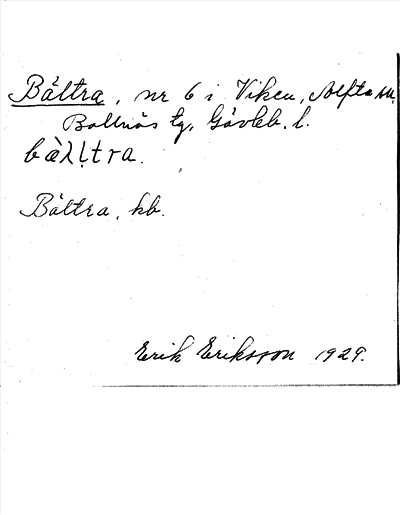 Bältra, nr 6 i Viken, Alfta sn,
Bollnäs tg, Gävleb. l.
bὰλḷtra.
Bältra, kb.
Erik Eriksson 1929.